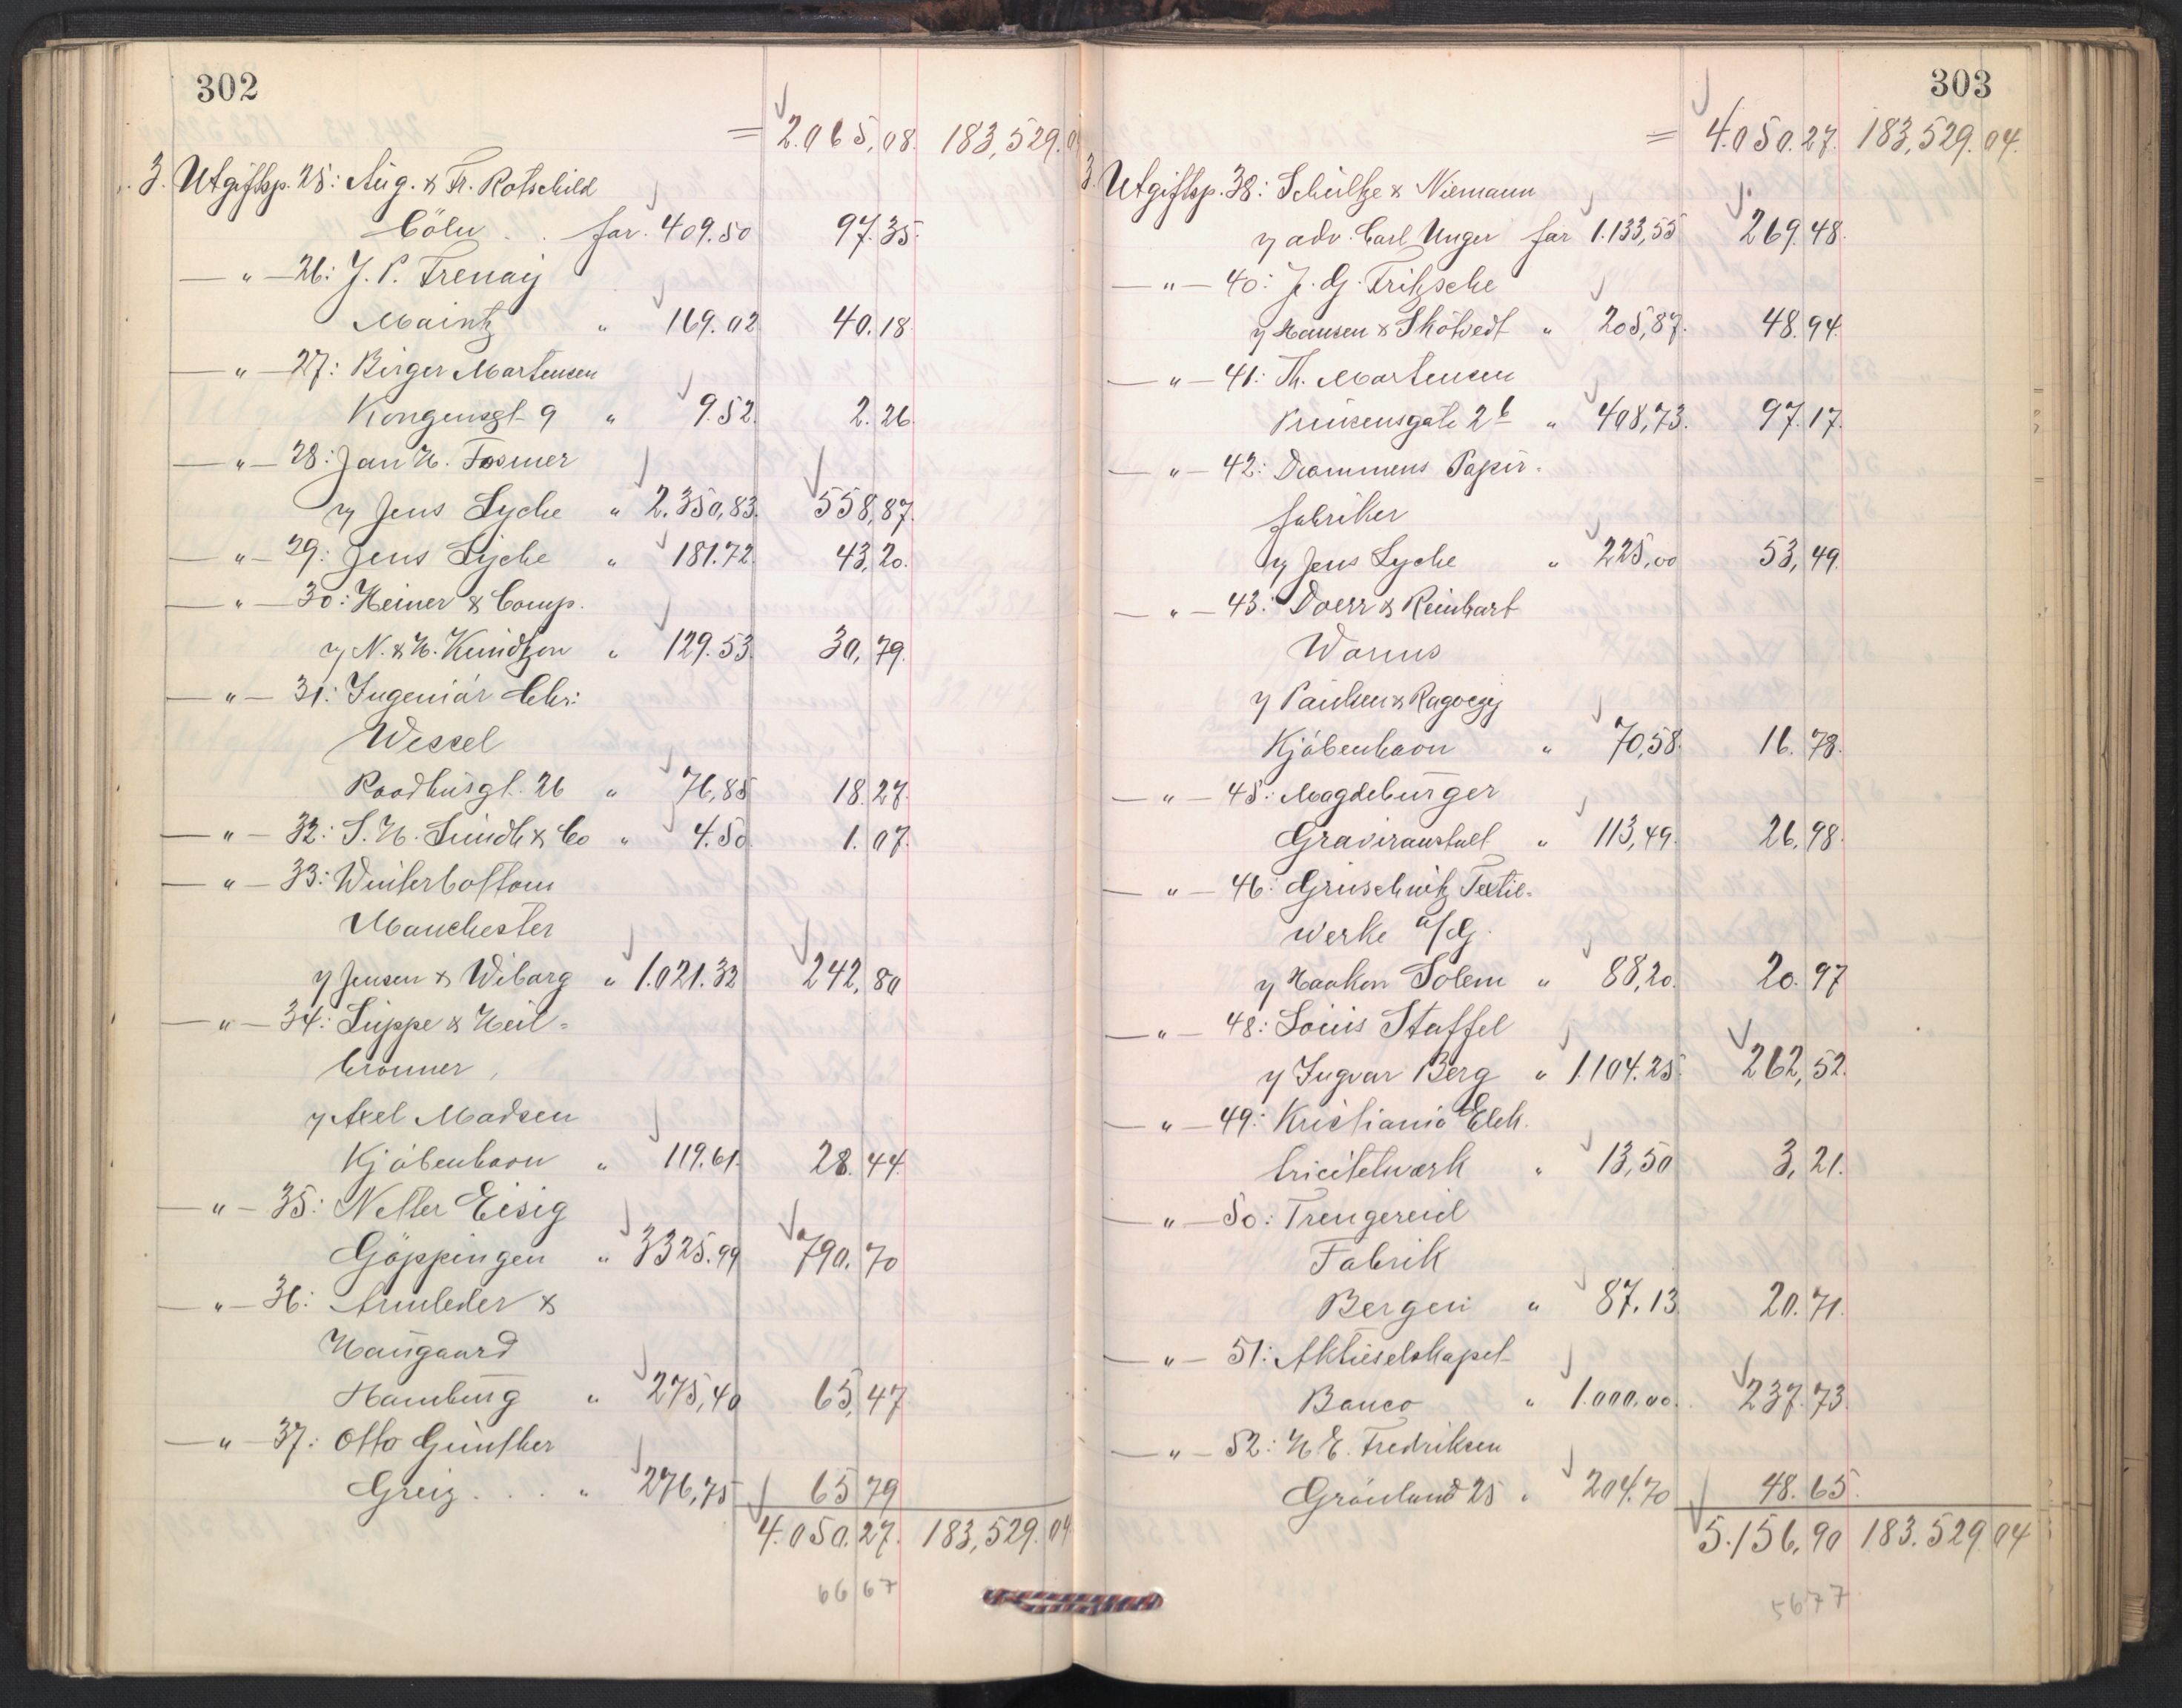 302
= 2.065,08. 183,529.0
3. Utgiftsp. 25: Aug. & Fr. Rotschild
Cöln . . for. 409.50 97.35.
— " — 26: J. P. Trenay
Maintz " 169.02 40.18
— " — 27: Birger Martensen
Kongensgt. 9 " 9.52. 2.26.
— " — 28: Jan H. Fosmer
y Jens Lyche " 2.350,83. 558,87.
— " — 29: Jens Lyche " 181.72. 43,20.
— " — 30: Heiner & Comp.
y N. & H. Kundtzon " 129.53. 30,79.
— " — 31: Ingeniör Chr:
Wessel
Raadhusgt. 26 " 76,85 18.27.
— " — 32: S. H. Lundh & Co " 4.50 1.07.
— " — 33: Winterbottom
Manchester
y Jensen & Wiborg " 1.021.32 242,80
— " — 34: Luppe & Heil-
bronner,
y Axel Madsen
Kjöbenhavn " 119.61. 28.44.
— " — 35: Netter Eisig
Göppingen " 3325.99 790.70
— " — 36: Armleder &
Haugaard
Hamburg " 275,40 65,47.
— " — 37: Otto Günther
Greiz . . . " 276,75 65 79
4.050.27. 183,529.04
66 67
303
= 4.050.27. 183,529.04.
3. Utgiftsp. 38: Schultze & Niemann
y adv. Carl Unger for 1.133,55 269.48.
— " — 40: J. G. Fritzsche
y Hansen & Skötvedt " 205,87. 48.94.
— " — 41: Th. Martensen
Prinsensgate 2b " 408,73. 97.17.
— " — 42: Drammens Papir-
fabriker
y Jens Lyche " 225,00 53,49.
— " — 43: Doerr & Reinhart
Worms
y Paulsen & Ragoczy
Kjöbenhavn " 70,58. 16.78.
— " — 45: Magdeburger
Graviranstalt " 113,49. 26,98.
— " — 46: Gruschwitz Textil-
werke a/G.
y Haakon Solem " 88,20. 20.97
— " — 48: Louis Staffel
y Ingvar Berg " 1.104.25. 262,52.
— " — 49: Kristiania Elek-
tricitetværk " 13,50 3,21.
— " — 50: Trengereid
Fabrik
Bergen " 87.13. 20.71.
— " — 51: Aktieselskapet
Banco " 1.000,00. 237.73.
— " — 52: H. E. Fredriksen
Grönland 25 " 204.70 48.65.
5.156,90 183.529.04
5677